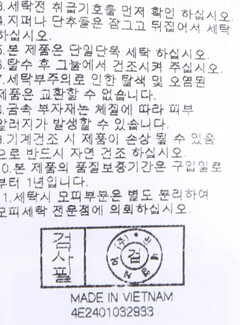 3.세탁전 취급기호를 먼저 확인 하십시오.
4.지퍼나 단추들은 잠그고 뒤집어서 세탁
하십시오.
5.본 제품은 단일단독 세탁 하십시오.
6.탈수 후 그늘에서 건조시켜 주십시오.
7.세탁부주의로 인한 탈색 및 오염된
제품은 교환할 수 없습니다.
8.금속 부자재는 체질에 따라 피부
알러지가 발생할 수 있습니다.
9.기계건조 시 제품이 손상 될 수 있음
으로 반드시 자연 건조 하십시오.
10.본 제품의 품질보증기간은 구입일로
부터 1년입니다.
11.세탁시 모피부분은 별도 분리하여
모피세탁 전문점에 의뢰하십시오.
검사필
검
MADE IN VIETNAM
4E2401032933